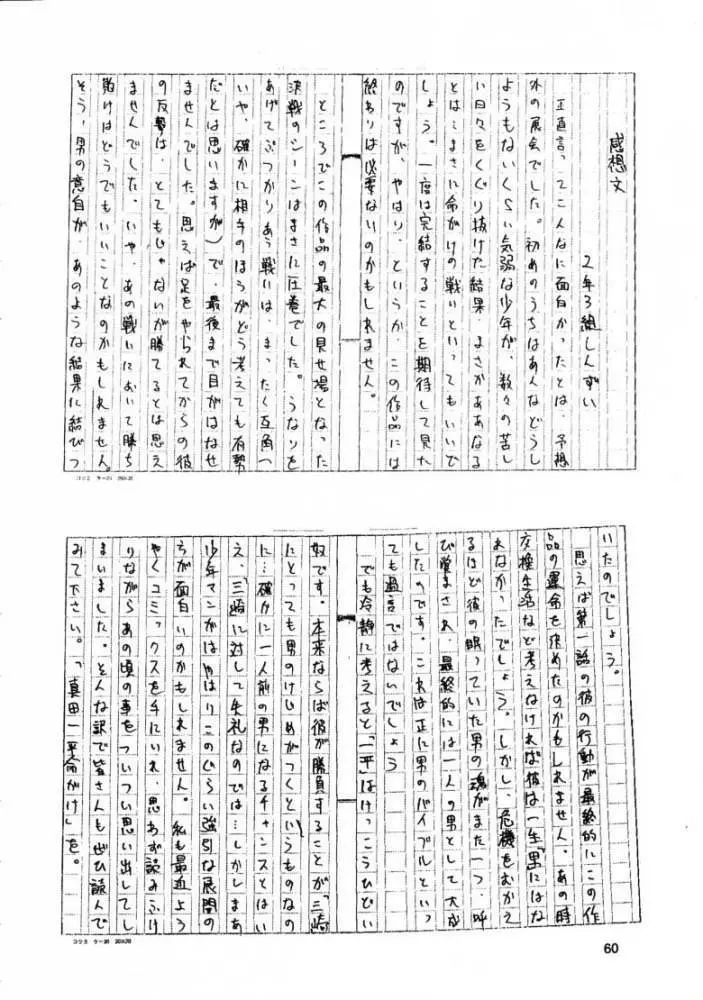 感想文
２年３組しんずい
正直言ってこんなに面白かったとは、予想
外の展会でした。初めのうちはあんなどうし
ようもないくらい気弱な少年が、数々の苦し
い日々をくぐり抜けた結果、まさかああなる
とは…まさに命がけの戦いといってもいいで
しょう。一度は完結することを期待して見た
のですが、やはり、というか、この作品には
終わりは必要ないのかもしれません。
ところでこの作品の最大の見せ場となった
決戦のシーンはまさに圧巻でした。うなりを
あげてぶつかりあう戦いは、まったく互角へ
いや、確かに相手のほうがどう考えても有勢
だとは思いますが）で、最後まで目がはなせ
ませんでした。思えば足をやられてからの彼
の反勢は、とてもじゃないが勝てるとは思え
ませんでした。いや、あの戦いにおいて勝ち
負けはどうでもいいことなのかもしれません。
そう、男の意自が、あのような結果に結びつ
コクヨ ケー20 20×20
いたのでしょう。
思えば第一話の彼の行動が最終的にこの作
品の運命を決めたのかもしれません。あの時
交換生活など考えなければ彼は一生「男」にはな
れなかったでしょう。しかし、危機をむかえ
るほど彼の眠っていた男の魂がまた一つ、呼
び覚まされ、最終的には一人の男として大成
したのです。これは正に男のバイブルといっ
ても過言ではないでしょう
でも冷静に考えると「一平」はけっこうひどい
奴です。本来ならば彼が勝負することが「三崎」
にとっても男のけじめがつくというものなの
に…確かに一人前の男になるチャンスとはい
え、「三崎」に対して失礼なのでは…しかしまあ
少年マンガはやはりこのぐらい強引な展開の
ちが面白いのかもしれません。私も最近よう
やくコミックスを手にいれ、思わず読みふけ
りながらあの頃の事をついつい思い出してし
まいました。そんな訳で皆さんも ぜひ読んで
みて下さい。「真田一平命がけ」を。
コクヨ ケー20 20×20
60